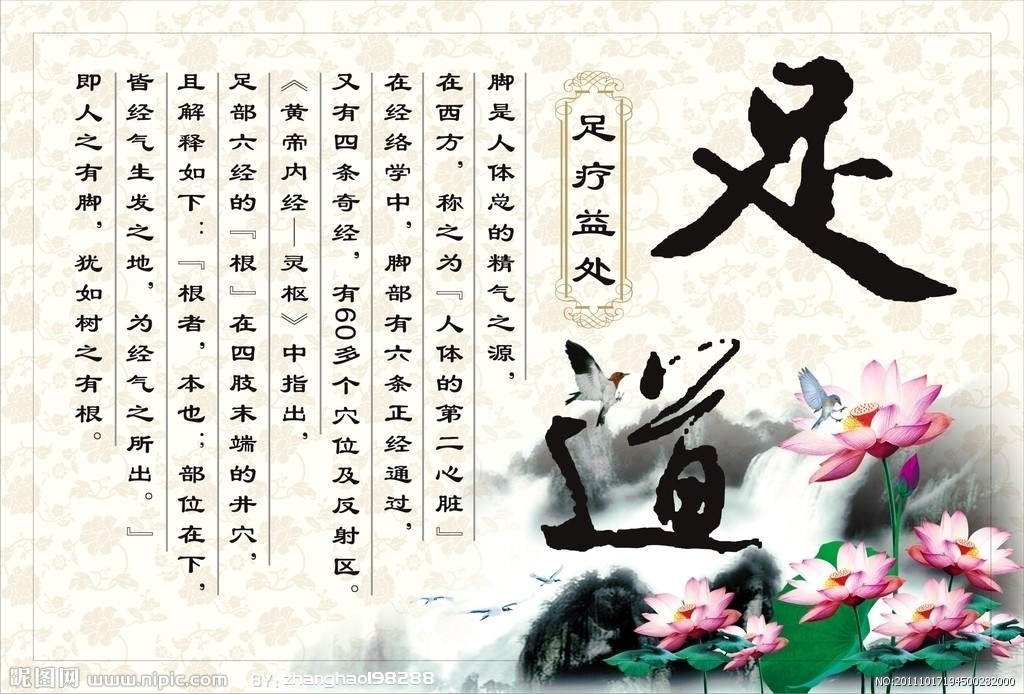 足道
足疗益处
脚是人体总的精气之源，
在西方，称之为『人体的第二心脏』
在经络学中，脚部有六条正经通过，
又有四条奇经，有60多个穴位及反射区。
《黄帝内经—灵枢》中指出，
足部六经的『根』在四肢末端的井穴，
且解释如下：『根者，本也；部位在下，
皆经气生发之地，为经气之所出。』
即人之有脚，犹如树之有根。
昵图网 www.nipic.com BY:zhanghaol98288
NO:20111017194500282000